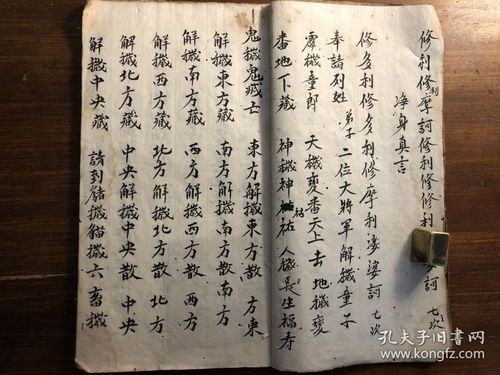 修利修利摩訶修利修修利婆訶 七次
净身真言
修多利修多利修摩利凄婆訶 七次
奉請列姓弟子二位大將軍解禨童子
禨童郎 天禨變番天上去 地禨變
番地下藏 神禨神祐 人禨長生福寿
鬼禨鬼滅亡 東方解禨東方散 方東
解禨東方藏 南方解禨南方散 南方
解禨南方藏 西方解禨西方散 西方
解禨西方藏 北方解禨北方散 北方
解禨北方藏 中央解禨中央散 中央
解禨中央藏 請到豬禨猫禨六畜禨
孔夫子旧书网
www.kongfz.com